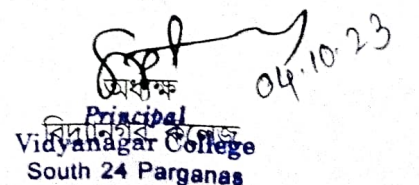 04.10.23
অধ্যক্ষ
Principal
বিদ্যানগর কলেজ
Vidyanagar College
South 24 Parganas